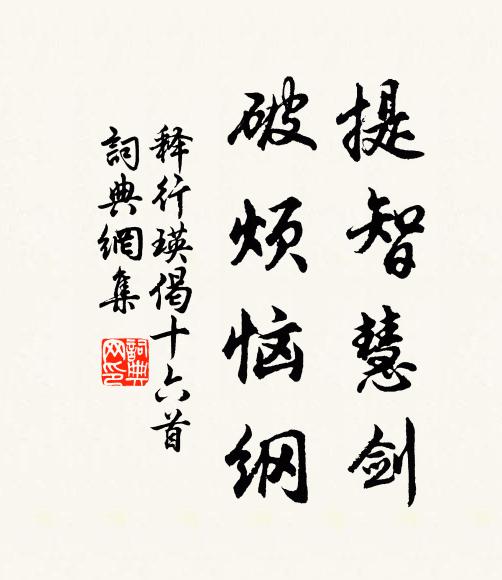 提智慧剑
破烦恼纲
释行瑛偈十六首
詞典網集
詞典网印